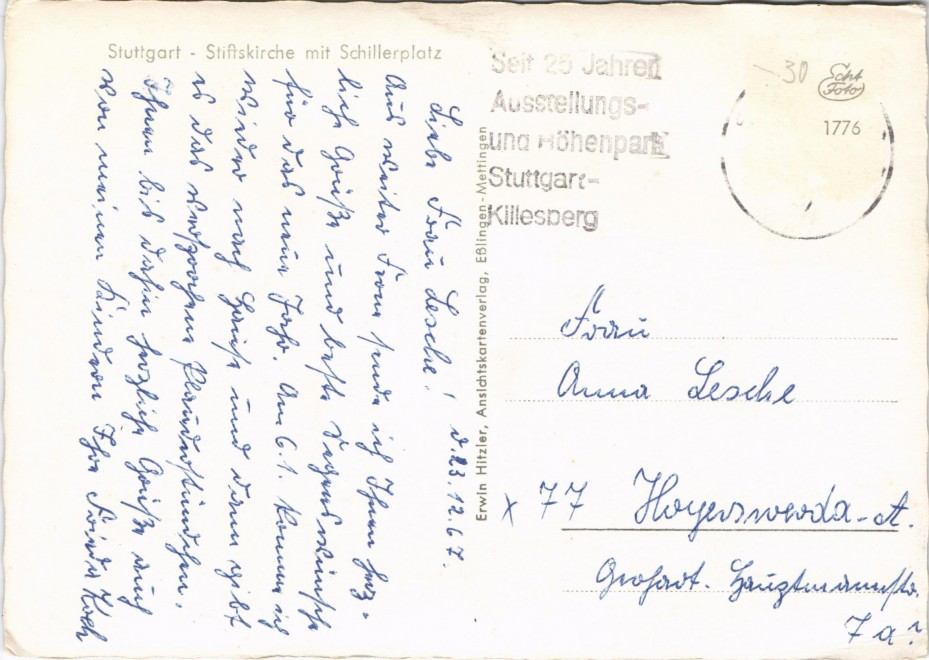 Stuttgart - Stiftskirche mit Schillerplatz
d. 23. 12. 67.
Liebe Frau Lesche!
Aus weiter Ferne sende ich Ihnen herz-
liche Grüße und beste Segenswünsche
für das neue Jahr. Am 6. 1. komme ich
wieder nach Hause und dann gibt
es das versprochene Plauderstündchen.
Ihnen bis dahin herzliche Grüße auch
von meinen Kindern Ihre Frieda Koch
Erwin Hitzler, Ansichtskartenverlag, Eßlingen-Mettingen
Seit 25 Jahren
Ausstellungs-
und Höhenpark
Stuttgart-
Killesberg
-30
Echt
Foto
1776
Frau
Anna Lesche
x 77 Hoyerswerda-A.
Gerhart-Hauptmannstr.
7a